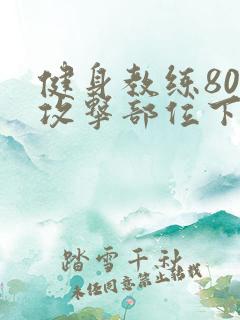 健身教练80
攻撃部位下
踏雪千秋
未经同意禁止转载